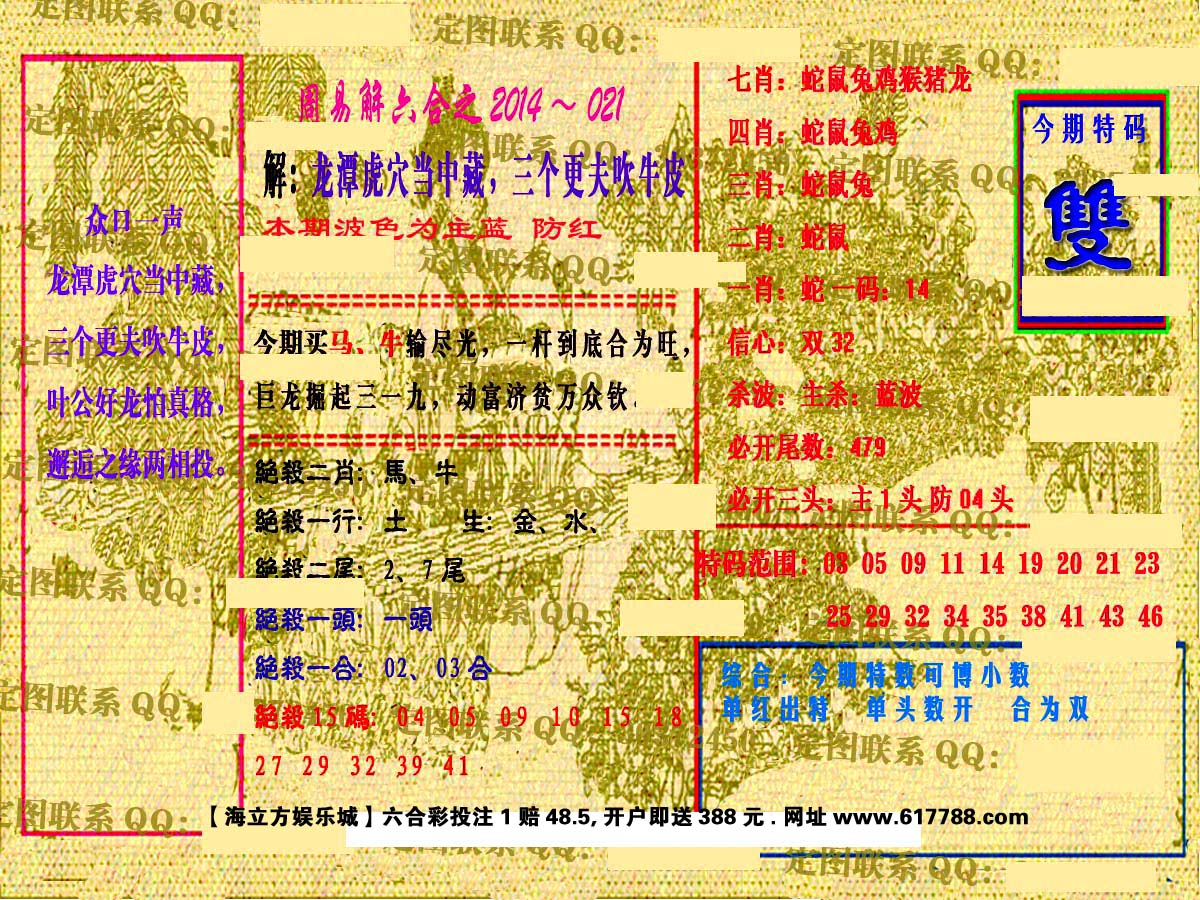 众口一声
龙潭虎穴当中藏，
三个更夫吹牛皮，
叶公好龙怕真格，
邂逅之缘两相投。
周易解六合之2014～021
解：龙潭虎穴当中藏，三个更夫吹牛皮
本期波色为主蓝 防红
今期买马、牛输尽光，一杆到底合为旺，
巨龙掘起三一九，动富济贫万众钦.
絕殺二肖：馬、牛
絕殺一行：土 生：金、水、
絕殺二尾：2、7尾
絕殺一頭：一頭
絕殺一合：02、03合
絕殺15碼：04 05 09 10 15 18
27 29 32 39 41
七肖：蛇鼠兔鸡猴猪龙
四肖：蛇鼠兔鸡
三肖：蛇鼠兔
二肖：蛇鼠
一肖：蛇 一码：14
信心：双32
杀波：主杀：蓝波
必开尾数：479
必开三头：主1头防04头
今期特码
雙
特码范围：03 05 09 11 14 19 20 21 23
25 29 32 34 35 38 41 43 46
综合：今期特数可博小数
单红出特 单头数开 合为双
【海立方娱乐城】六合彩投注1赔48.5,开户即送388元.网址www.617788.com
定图联系QQ：
定图联系QQ：
定图联系QQ：
定图联系QQ：
定图联系QQ：
定图联系QQ：
定图联系QQ：
定图联系QQ：